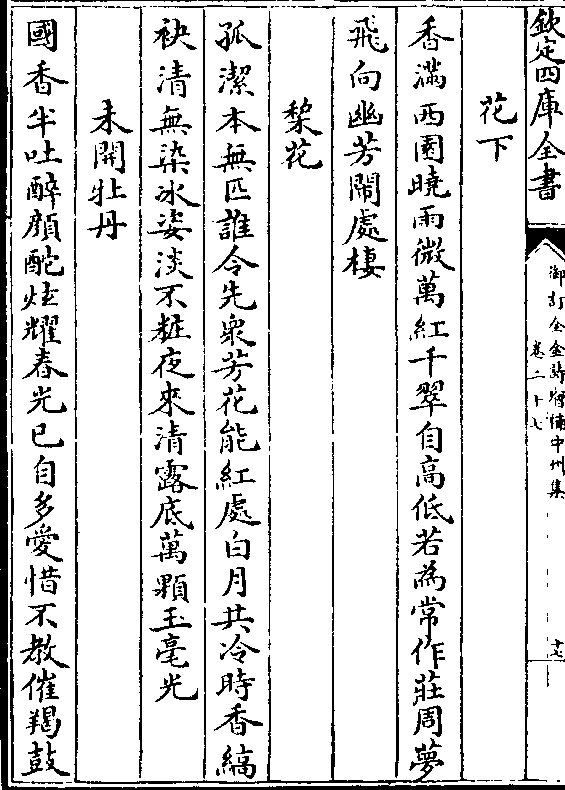 欽定四庫全書
御訂全金詩增補中州集
卷二十七
十七
花下
香滿西園曉雨微萬紅千翠自高低若為常作莊周夢
飛向幽芳鬧處棲
棃花
孤潔本無匹誰令先衆芳花能紅處白月共冷時香縞
袂清無染冰姿淡不粧夜來清露底萬顆玉毫光
未開牡丹
國香半吐醉顔酡炫耀春光已自多愛惜不教催羯鼓